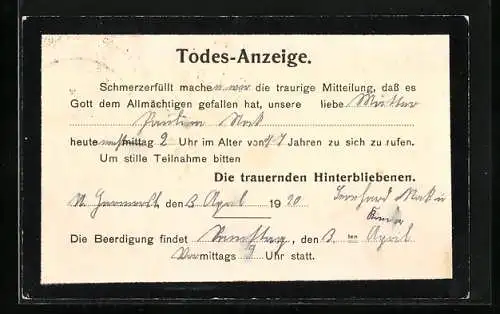 Todes-Anzeige.
Schmerzerfüllt machen wir die traurige Mitteilung, daß es
Gott dem Allmächtigen gefallen hat, unsere liebe Mutter
heute mittag 2 Uhr im Alter von 47 Jahren zu sich zu rufen.
Um stille Teilnahme bitten
Die trauernden Hinterbliebenen.
den April 1920
Die Beerdigung findet Samstag, den 3. ten April
Vormittags 9 Uhr statt.